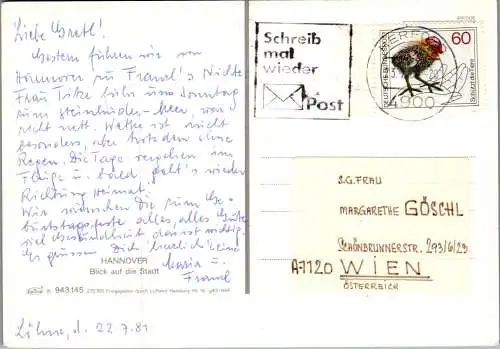 Liebe Gretl!
Gestern führen wir von
Hannover zu Franzl's Nichte
Frau Titze hin am Sonntag
zum Steinhuder-Meer, war
recht nett. Wetter ist nicht
besonders, aber trotzdem ohne
Regen. Die Tage vergehen im
Fluge u. bald geht's wieder
Richtung Heimat.
Wir wünschen Dir zum Ge-
burtstagsfeste alles, alles Gute
viel Gesundheit das ist wichtig.
Es grüssen Dich herzlich
Maria u.
Franzl
HANNOVER
Blick auf die Stadt
943.145
Löhne, d. 22.7.81
Schreib
mal
wieder
Post
HERFORD
4900
DEUTSCHE BUNDESPOST
60
Schützt die Tiere
S.G. FRAU
MARGARETHE GÖSCHL
SCHÖNBRUNNERSTR. 293/6/29
A-1120 WIEN
ÖSTERREICH